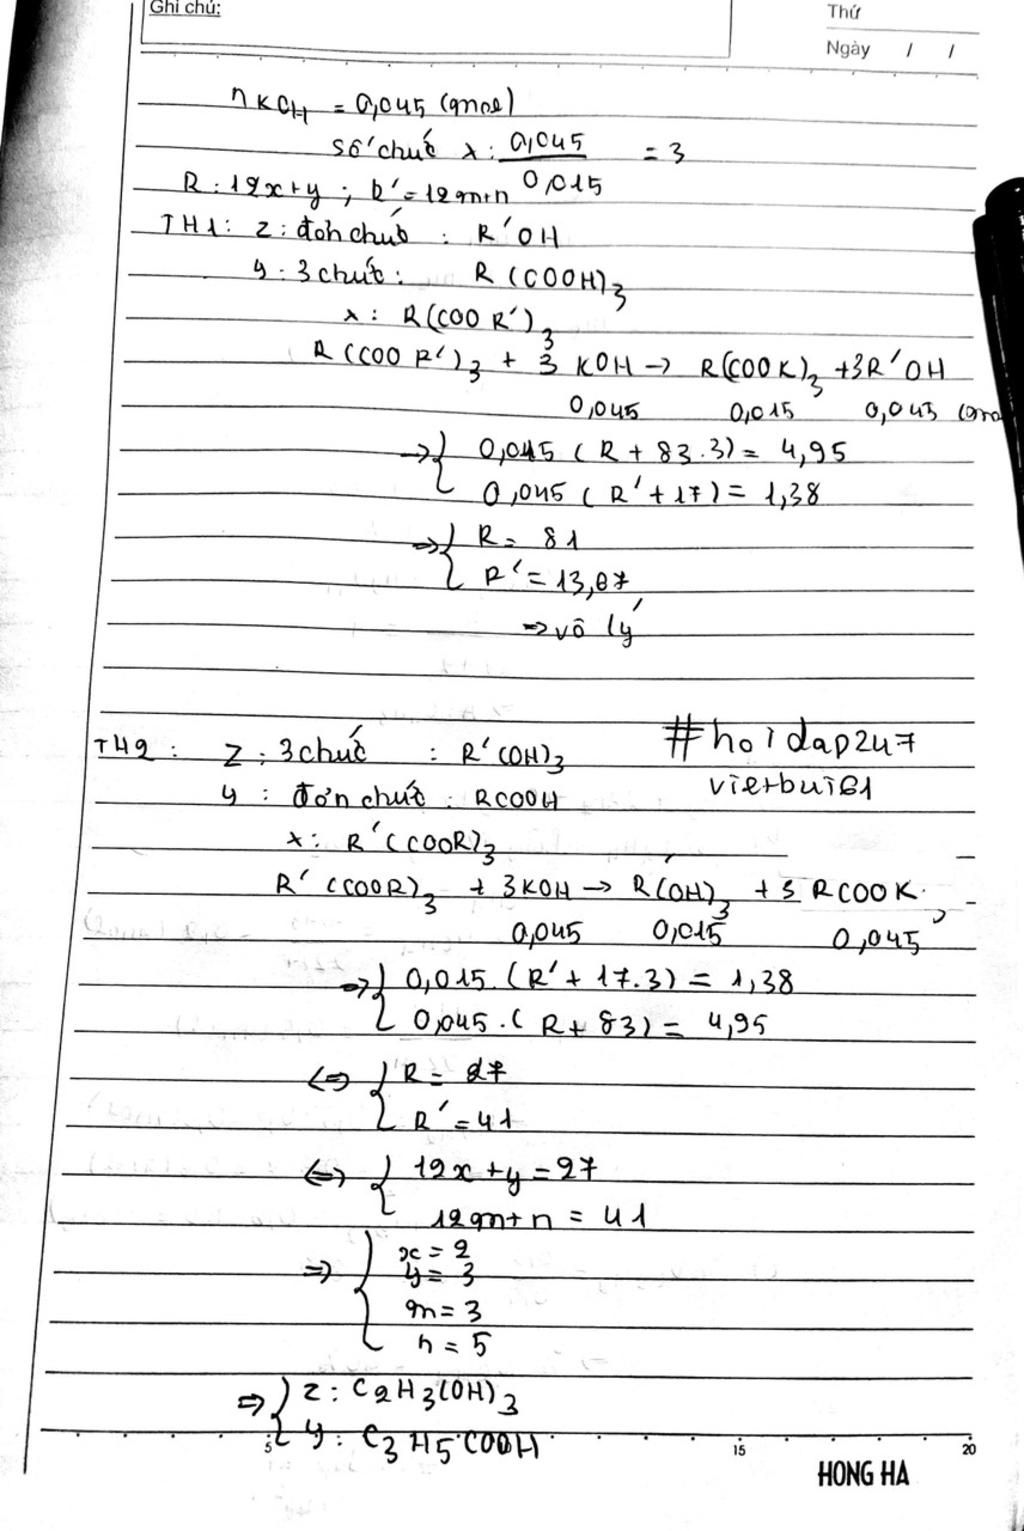 Ghi chú:
Thứ
Ngày / /
nKOH = 0,045 (mol)
Số chức x: 0,045 / 0,015 = 3
R: 12x+y ; R' = 12m+n
TH1: Z: đơn chức : R'OH
y: 3 chức: R(COOH)3
x: R(COOR')3
R(COOR')3 + 3 KOH → R(COOK)3 + 3R'OH
0,045 0,015 0,045 (mo
⇒ { 0,045 (R + 83.3) = 4,95
0,045 (R' + 17) = 1,38
⇒ { R = 81
R' = 13,67
⇒ vô lý
TH2: Z: 3 chức : R'(OH)3
#hoidap247
y: đơn chức : RCOOH
vietbui61
x: R'(COOR)3
R'(COOR)3 + 3KOH → R'(OH)3 + 3 RCOOK
0,045 0,015 0,045
⇒ { 0,015.(R' + 17.3) = 1,38
0,045.(R + 83) = 4,95
⇔ { R = 27
R' = 41
⇔ { 12x + y = 27
12m + n = 41
⇒ { x = 2
y = 3
m = 3
n = 5
⇒ { Z: C2H3(OH)3
y: C3H5COOH
5 15 20
HONG HA